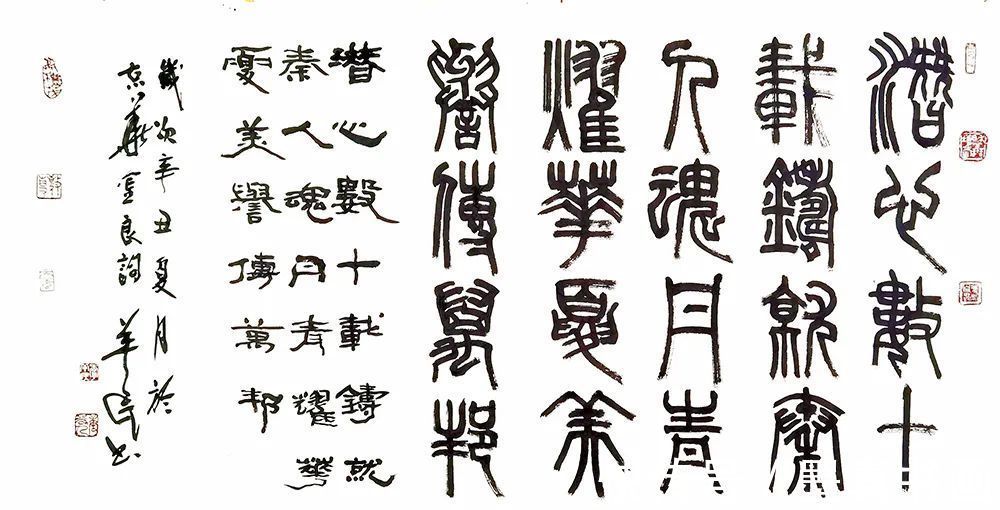 潛心數十
載鑄就秦
人魂丹青
耀華夏美
譽傳萬邦
潛心數十載鑄就
秦人魂丹青耀華
夏美譽傳萬邦
歲次辛丑夏月於
京華良詞书